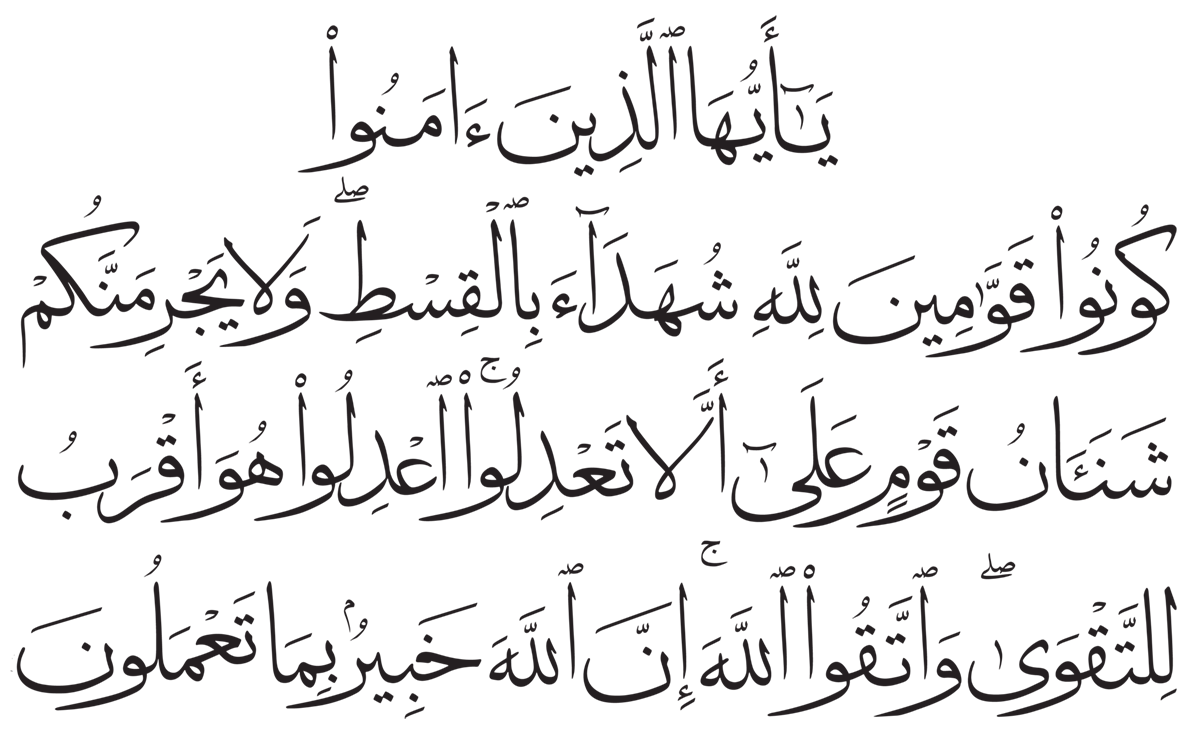 يَـٰٓأَيُّهَا ٱلَّذِينَ ءَامَنُوا۟
كُونُوا۟ قَوَّٰمِينَ لِلَّهِ شُهَدَآءَ بِٱلْقِسْطِ ۖ وَلَا يَجْرِمَنَّكُمْ
شَنَـَٔانُ قَوْمٍ عَلَىٰٓ أَلَّا تَعْدِلُوا۟ ۚ ٱعْدِلُوا۟ هُوَ أَقْرَبُ
لِلتَّقْوَىٰ ۖ وَٱتَّقُوا۟ ٱللَّهَ ۚ إِنَّ ٱللَّهَ خَبِيرٌۢ بِمَا تَعْمَلُونَ